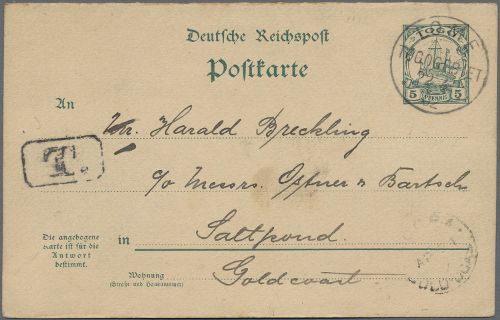 Deutsche Reichspost
Postkarte
TOGO
5 PFENNIG 5
TOGOGEBIET
An Mr. Harald Breckling
T.
c/o Messrs. Offner & Bartsch
Die angebogene
Karte ist für die
Antwort
bestimmt.
in Saltpond.
Wohnung
(Straße und Hausnummer)
Goldcoast
GOLD COAST